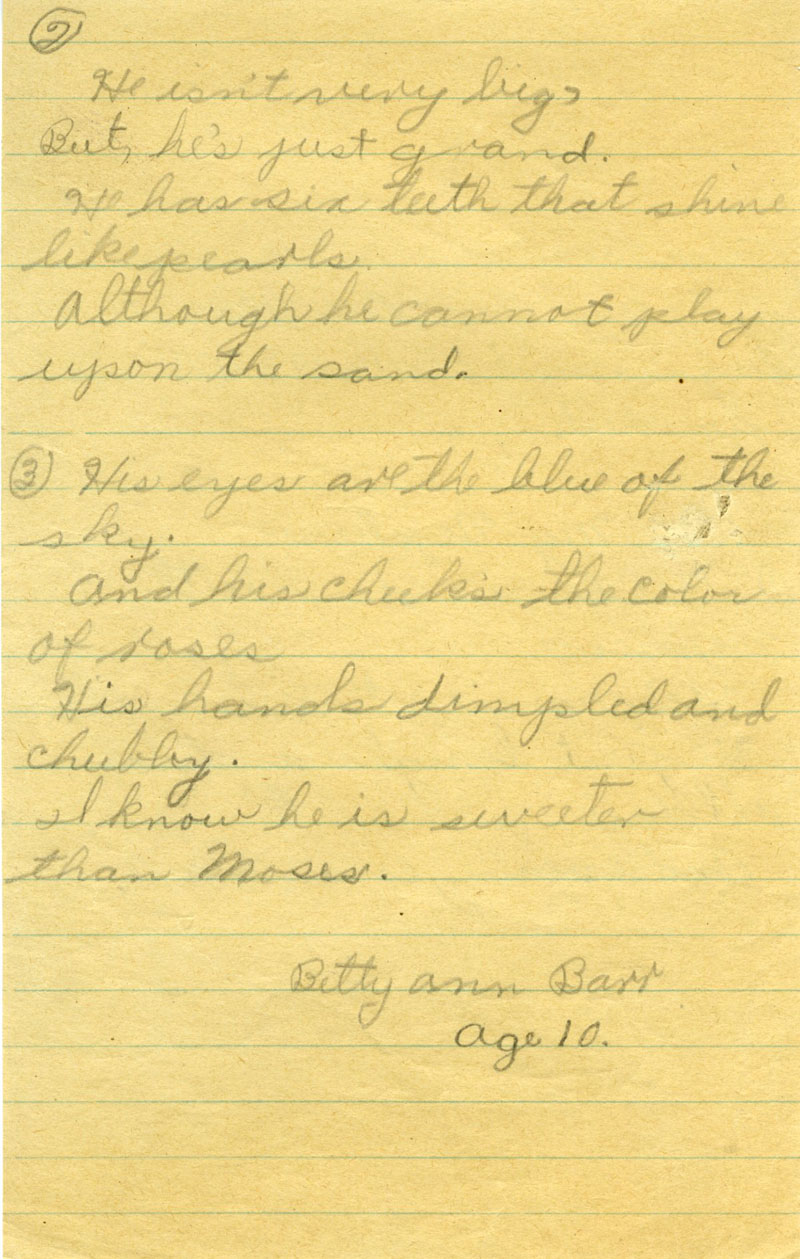 2
He isn't very big,
But, he's just grand.
He has six teeth that shine
like pearls.
Although he cannot play
upon the sand.
3 His eyes are the blue of the
sky.
And his cheeks the color
of roses
His hands dimpled and
chubby.
I know he is sweeter
than Moses.
Betty Ann Barr
Age 10.